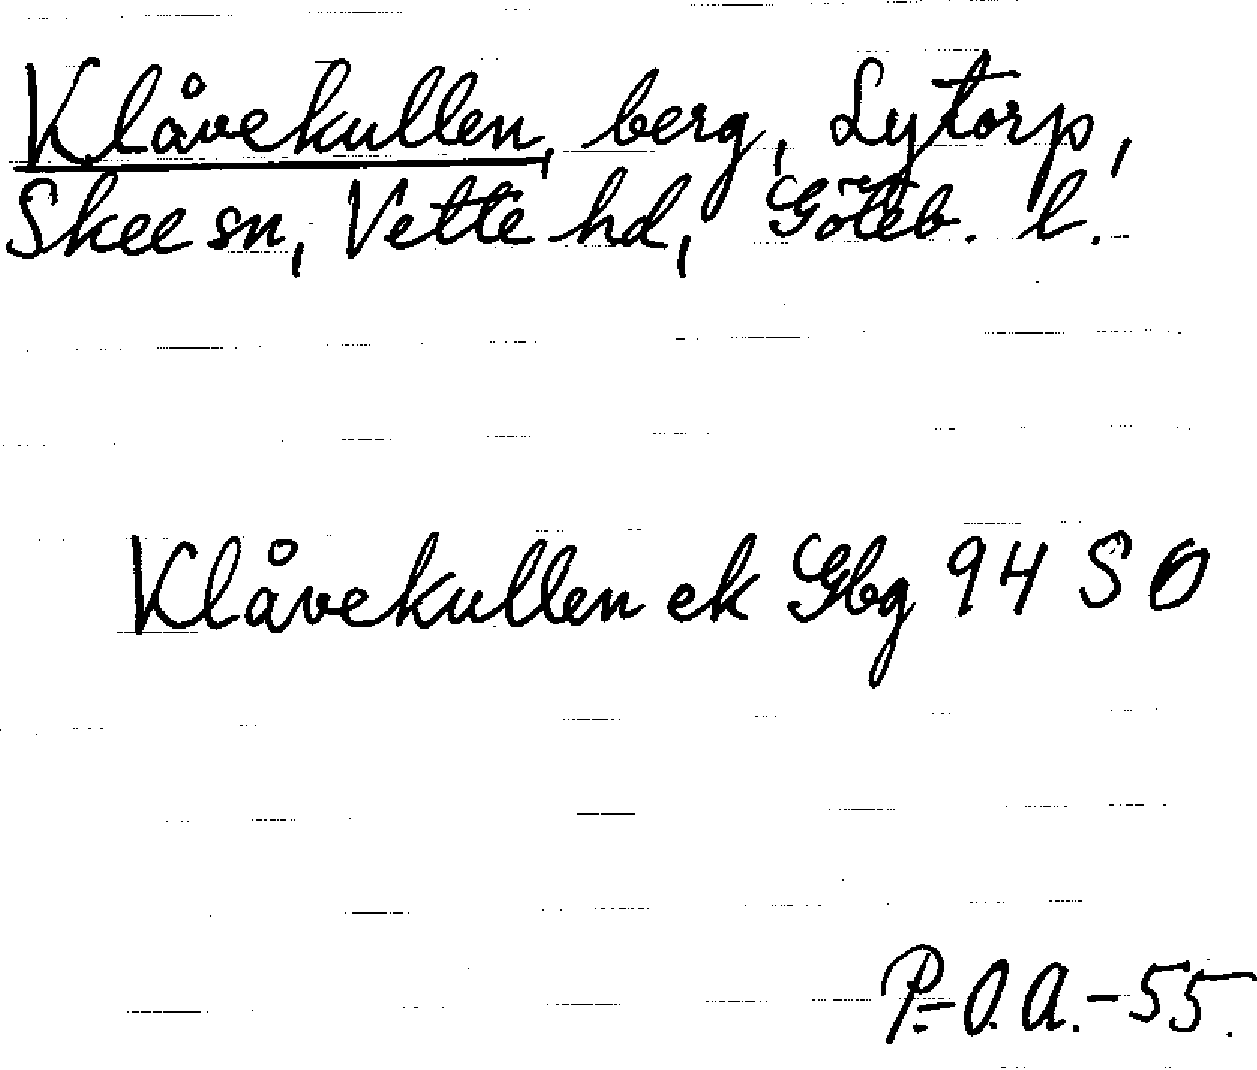 Klåvekullen, berg, Lytorp,
Skee sn, Vette hd, Göteb. l.
Klåvekullen ek Gbg 94 S O
P.-O. A. -55.